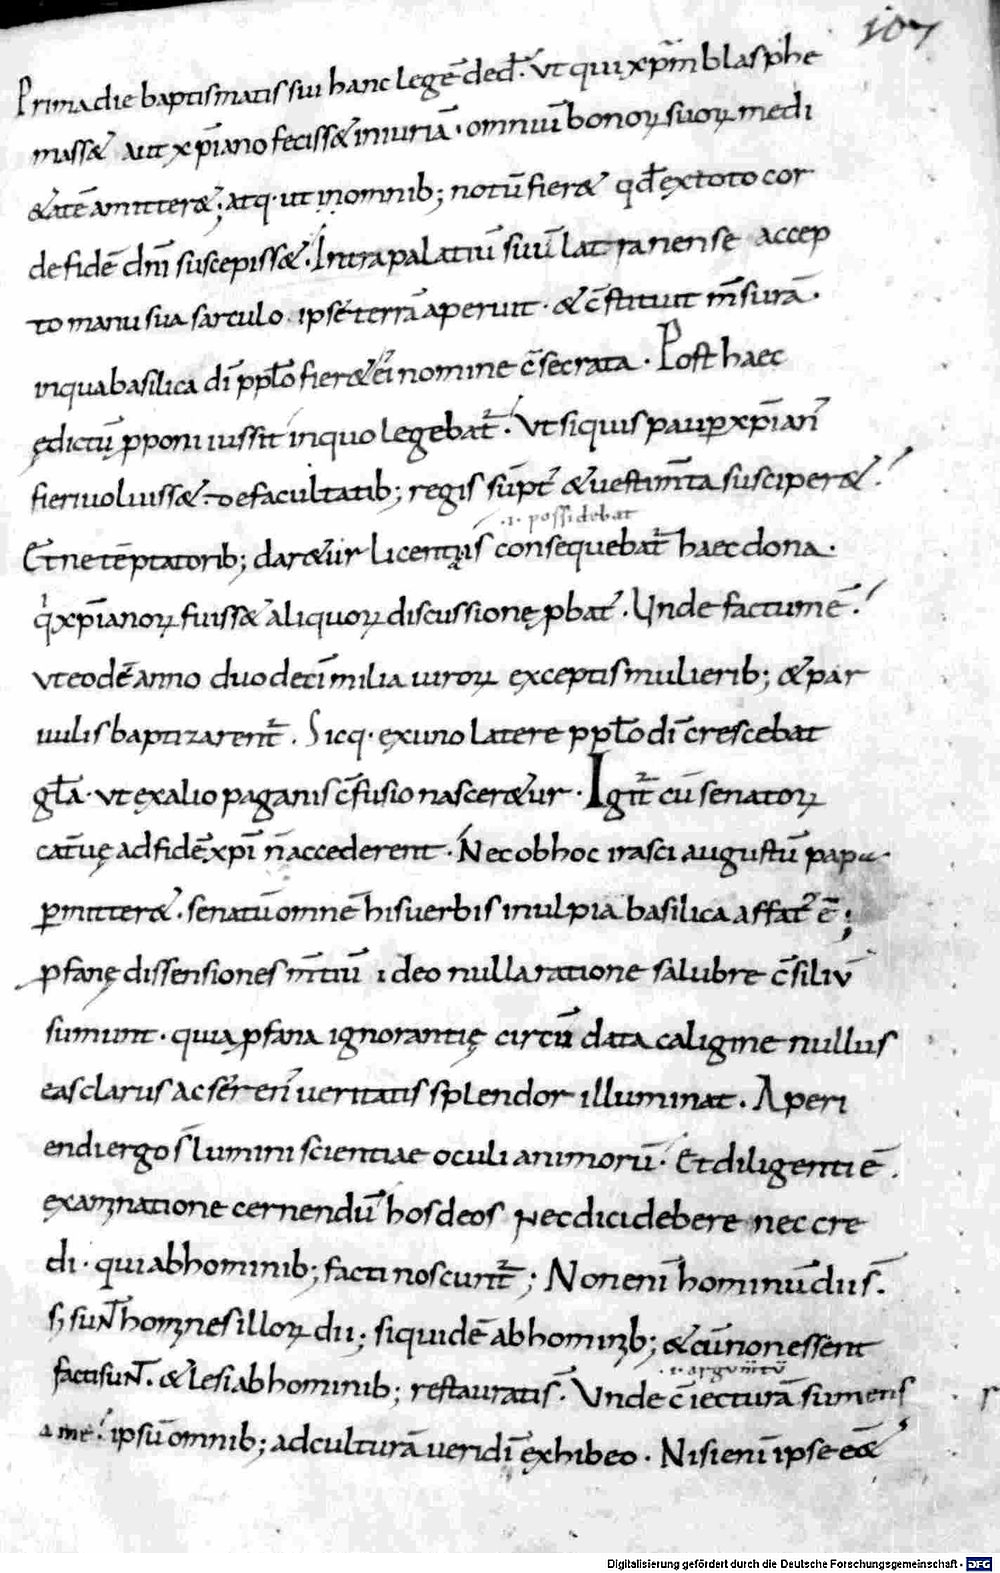 107
Prima die baptismatis sui hanc legē ded̄. Vt qui xp̄m blasphe
massꝫ aut xp̄iano fecissꝫ iniuriā. omniū bonoꝝ suoꝝ medi
&atē amitter&; atq. ut in omnib; notū fier& qđ ex toto cor
de fidē dn̄i suscepiss&. Intra palatiū suū lateranense accep
to manu sua sarculo. ipse terrā aperuit. & c̄stituit m̄surā.
in qua basilica dī pplō fier& ei nomine c̄secrata. Post haec
ędictū pponi iussit in quo legebat̃. Vt siquis pauꝑ xp̄ian
fieri uoluiss&. de facultatib; regis sūpt & uestim̄ta susciper&.
.i. possidebat
Et ne tēptatorib; dar&ur licentia consequebat̃ haec dona.
q xp̄ianoꝝ fuiss& aliquoꝝ discussione pbat. Unde factum ē.
vt eodē anno duodeci milia uiroꝝ exceptis mulierib; & par
uulis baptizarent̃. Sicq. ex uno latere pplō dī crescebat
gl̄a. ut ex alio paganis c̄fusio nascer&ur. Igit̃ cū senatoꝝ
cat̃uę ad fidē xp̄i n̄ accederent. Nec ob hoc irasci augustū papa
ꝑmitter&. senatū omnē his uerbis in ulpia basilica affat̃ ē;
ꝓfanę dissensiones m̄tiū ideo nulla ratione salubre c̄siliū
sumunt. quia ꝓfana ignorantię circū data caligine nullus
eas clarus ac seren ueritatis splendor illuminat. Aperi
endi ergo s̄ lumini scientiae oculi animorū. Et diligenti ē.
examinatione cernendū hos deos nec dici debere nec cre
di. qui ab hominib; facti noscunt̃; Non enī hominū dii s̄.
s; sun̄t homines illoꝝ dii; siquidē ab hominib; & cū non essent
.i. argum̄tū
facti sun̄t. & lesi ab hominib; restaurati s̄. Unde c̄iecturā sumens
a me. ipsū omnib; ad culturā ueri dī exhibeo. Nisi enī ipse e&
Digitalisierung gefördert durch die Deutsche Forschungsgemeinschaft - DFG